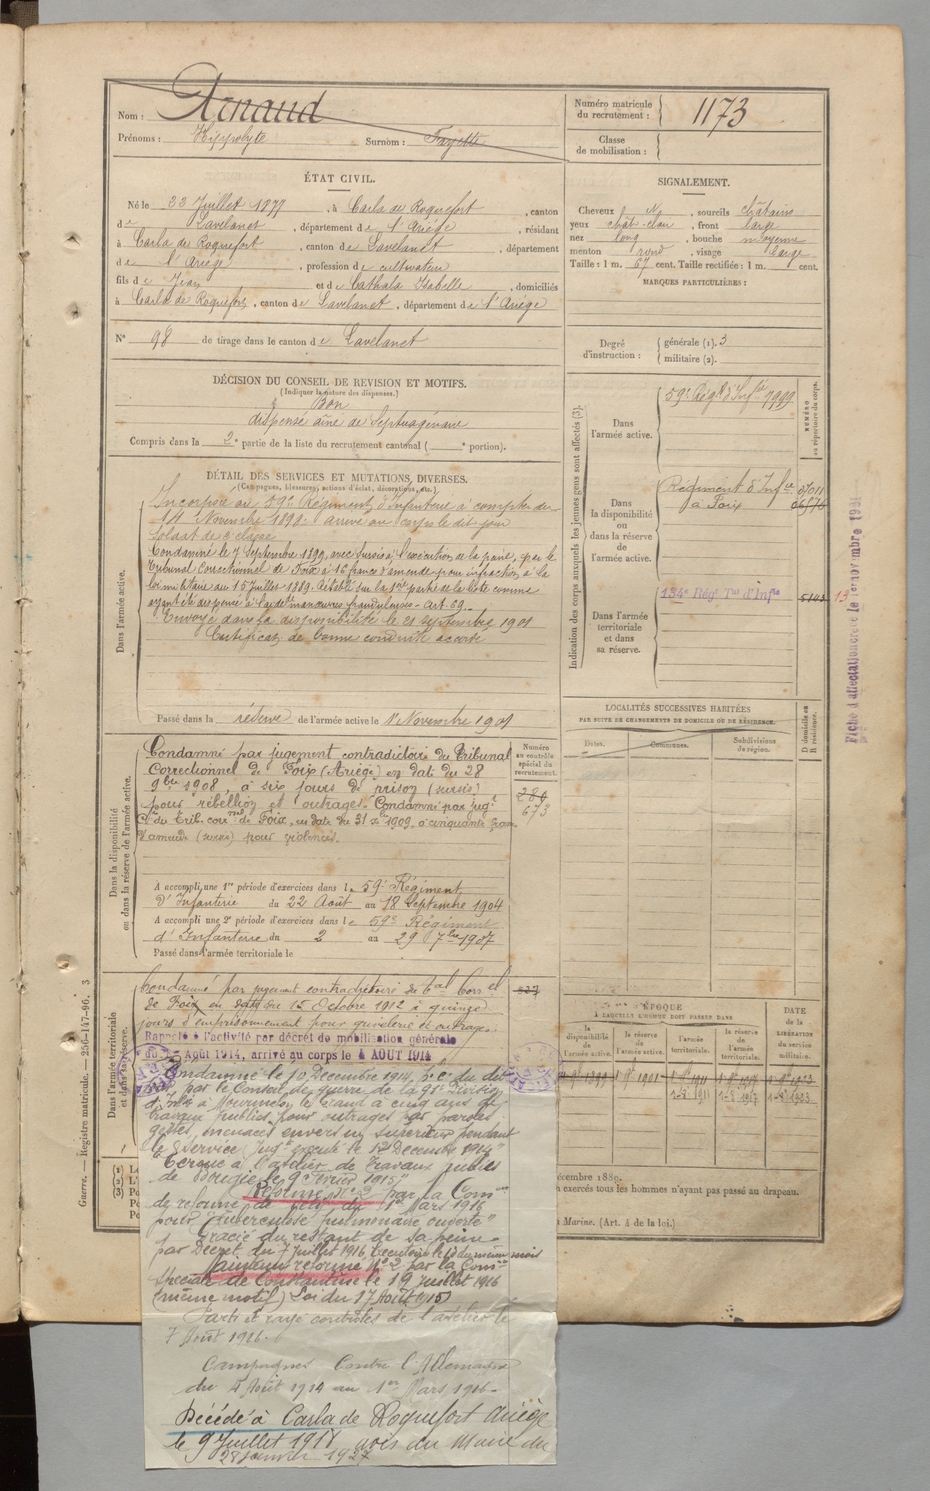 Nom : Arnaud
Prénoms : Hippolyte Surnom : Fayette
Numéro matricule du recrutement : 1173
Classe de mobilisation :
ÉTAT CIVIL.
Né le 23 Juillet 1877, à Carla de Roquefort, canton
de Lavelanet, département de l'Ariège, résidant
à Carla de Roquefort, canton de Lavelanet, département
de l'Ariège, profession de cultivateur
fils de Jean et de Cathala Isabelle, domiciliés
à Carla de Roquefort, canton de Lavelanet, département de l'Ariège
N° 98 de tirage dans le canton de Lavelanet
SIGNALEMENT.
Cheveux N, sourcils châtains
yeux chât. clair, front large
nez long, bouche moyenne
menton rond, visage large
Taille : 1 m. 67 cent. Taille rectifiée : 1 m. cent.
MARQUES PARTICULIÈRES :
Degré d'instruction : générale (1). 3
militaire (2).
DÉCISION DU CONSEIL DE REVISION ET MOTIFS.
(Indiquer la nature des dispenses.)
Bon
dispensé aîné de septuagénaire
Compris dans la 2e partie de la liste du recrutement cantonal ( e portion).
DÉTAIL DES SERVICES ET MUTATIONS DIVERSES.
(Campagnes, blessures, actions d'éclat, décorations, etc.)
Dans l'armée active.
Incorporé au 59e Régiment d'Infanterie à compter du
14 Novembre 1898. arrivé au corps le dit jour
Soldat de 2e classe
Condamné le 7 Septembre 1899, avec sursis à l'exécution de la peine, par le
Tribunal Correctionnel de Foix à 16 francs d'amende pour infraction à la
loi militaire du 15 Juillet 1889. Rétabli sur la 1ère partie de la liste comme
ayant été dispensé à l'aide de manœuvres frauduleuses - Art. 69.
Envoyé dans la disponibilité le 21 Septembre 1901
Certificat de bonne conduite accordé
Passé dans la réserve de l'armée active le 1er Novembre 1901
Indication des corps auxquels les jeunes gens sont affectés (3).
NUMÉRO au répertoire du corps.
Dans l'armée active.
59e Rég. d'Infie 7999
Dans la disponibilité ou dans la réserve de l'armée active.
Régiment d'Infie
à Foix
Dans l'armée territoriale et dans sa réserve.
134e Rég. Tal d'Infie
Fiche d'affectation créée le 1er novembre
LOCALITÉS SUCCESSIVES HABITÉES
PAR SUITE DE CHANGEMENTS DE DOMICILE OU DE RÉSIDENCE.
Dates. Communes. Subdivisions de région. D domicile ou R résidence.
Dans la disponibilité ou dans la réserve de l'armée active.
Numéro au contrôle spécial du recrutement.
284
673
Condamné par jugement contradictoire du Tribunal
Correctionnel de Foix (Ariège) en date du 28
9bre 1908, à six jours de prison (sursis)
pour rébellion et outrages. Condamné par jugt
Ct du Trib. corrnel de Foix, en date du 31 Xbre 1909, à cinquante fran
d'amende (sursis) pour violences.
A accompli une 1re période d'exercices dans le 59e Régiment
d'Infanterie du 22 Août au 18 Septembre 1904
A accompli une 2e période d'exercices dans le 59e Régiment
d'Infanterie du 2 au 29 7bre 1907
Passé dans l'armée territoriale le
Dans l'armée territoriale et dans sa réserve.
Condamné par jugement contradictoire du Tal Correl
de Foix en date du 15 Octobre 1912 à quinze
jours d'emprisonnement pour grivelerie et outrages.
Rappelé à l'activité par décret de mobilisation générale
Août 1914, arrivé au corps le 4 AOUT 1914
Condamné le 10 Décembre 1914,
par le Conseil de guerre de la
à Mourmelon le Grand à cinq ans de
travaux publics pour outrages par paroles
gestes, menaces envers un supérieur pendant
le service Jugt exécuté le 12 Décembre 1914
Ecroué à l'atelier de Travaux publics
de Bougie le 9 Février 1915
Réformé N° 2 par la Comon
de réforme de du 1er Mars 1916
pour "tuberculose pulmonaire ouverte"
Gracié du restant de sa peine
par Décret du 7 Juillet 1916, Exécutoire le du même mois
Maintenu réformé N° 2 par la Comon
spéciale de Constantine le 19 Juillet 1916
(même motif) Loi du 17 Août 1915
Parti et rayé contrôles de l'atelier le
7 Août 1916.
Campagnes Contre l'Allemagne
du 4 Août 1914 au 1er Mars 1916.
Décédé à Carla de Roquefort Ariège
le 9 Juillet 1918 avis du Maire du
28 Janvier 1927
ÉPOQUE
À LAQUELLE L'HOMME DOIT PASSER DANS
la disponibilité de l'armée active. la réserve de l'armée active. l'armée territoriale. la réserve de l'armée territoriale. DATE de la LIBÉRATION du service militaire.
écembre 1889.
exercés tous les hommes n'ayant pas passé au drapeau.
Marine. (Art. 4 de la loi.)
Guerre. — Registre matricule. — 256-147-96. 3